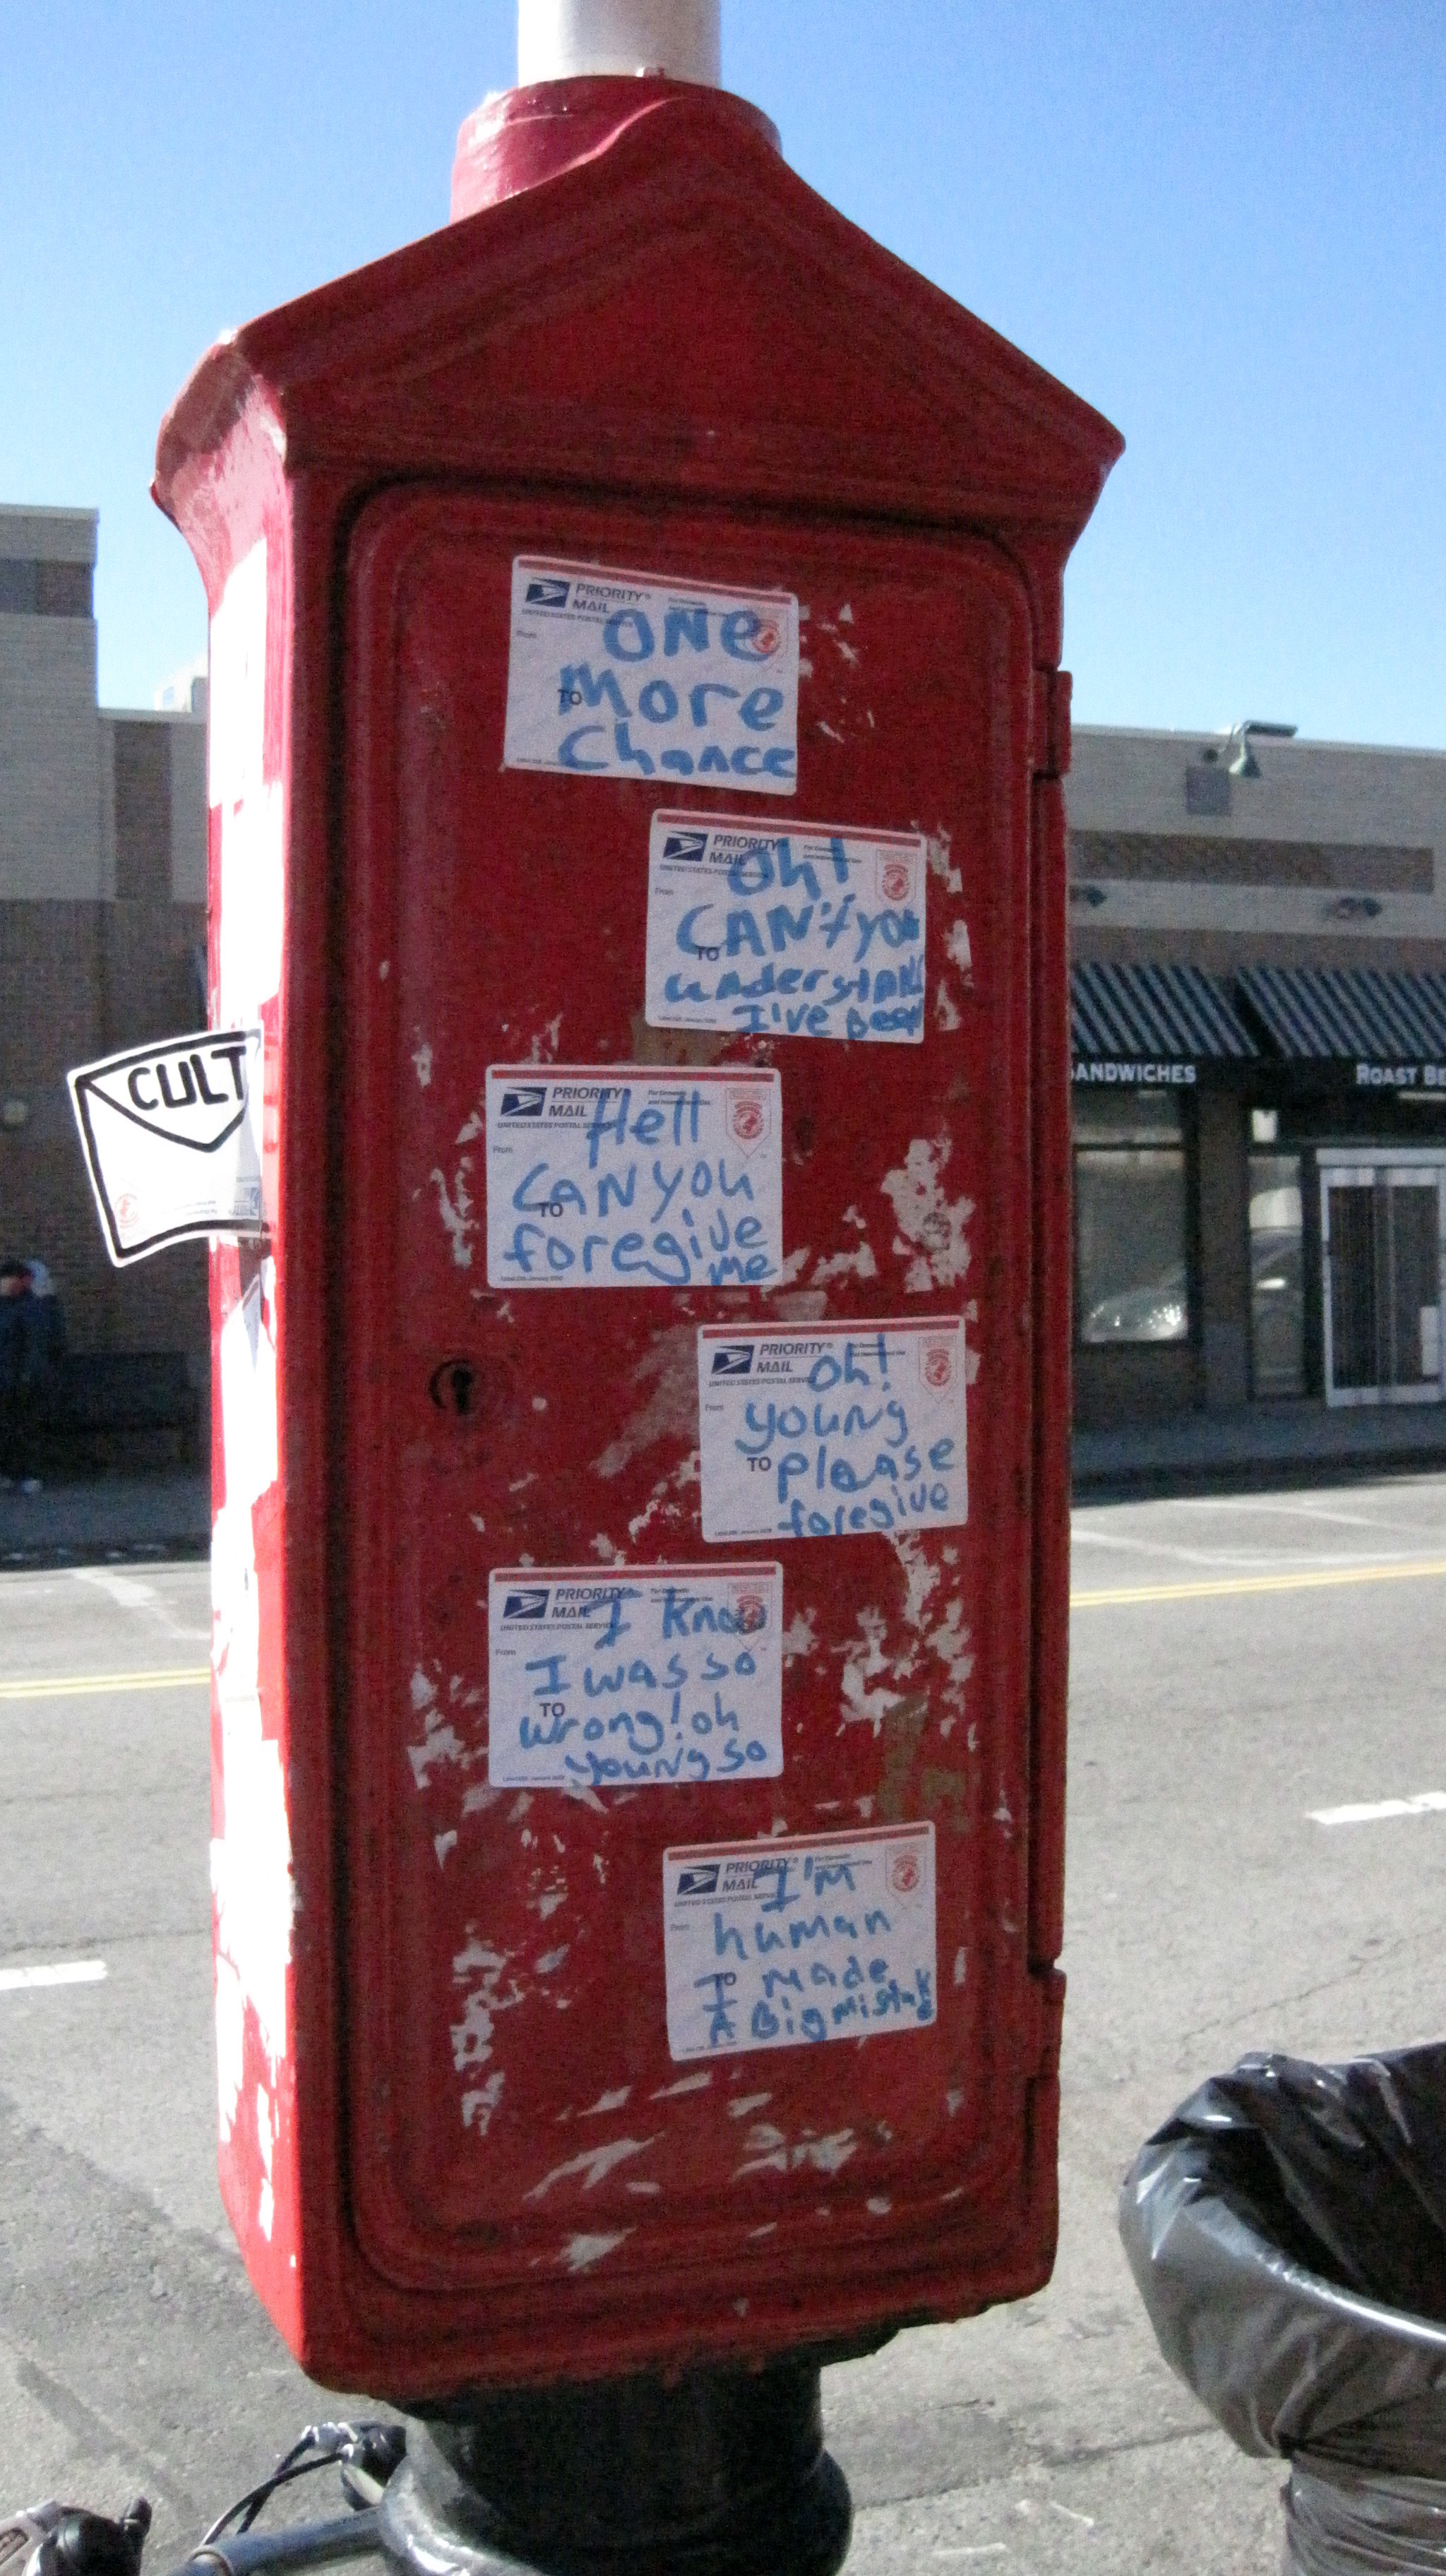 PRIORITY®
MAIL
UNITED STATES POSTAL SERVICE
From
ONE
TO
more
Chance
PRIORITY®
MAIL
UNITED STATES POSTAL SERVICE
From
Oh!
CAN't you
TO
understAND
I've Been
CULT
PRIORITY®
MAIL
UNITED STATES POSTAL SERVICE
From
Hell
CAN you
TO
foregive
me
SANDWICHES
ROAST BE
PRIORITY®
MAIL
UNITED STATES POSTAL SERVICE
From
oh!
young
TO please
foregive
PRIORITY®
MAIL
UNITED STATES POSTAL SERVICE
From
I know
I was so
TO
wrong! oh
young so
PRIORITY®
MAIL
UNITED STATES POSTAL SERVICE
From
I'm
human
TO
I made
A Big mistake